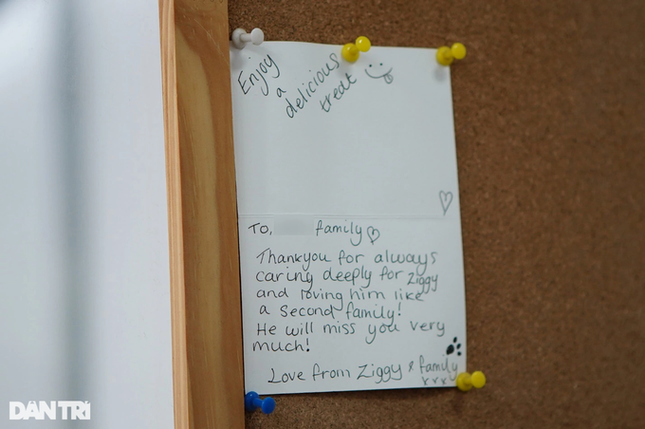 Enjoy
a
delicious
treat
To, family
Thankyou for always
caring deeply for Ziggy
and loving him like
a second family!
He will miss you very
much!
Love from Ziggy & family
x x x x
DÂN TRÍ